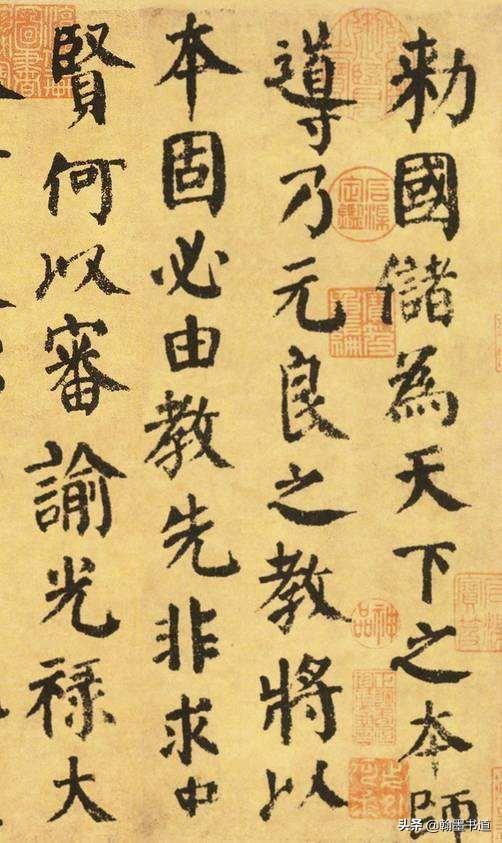 勅國儲為天下之本師
導乃元良之教將以
本固必由教先非求中
賢何以審諭光祿大
神品
头条 @翰墨书道